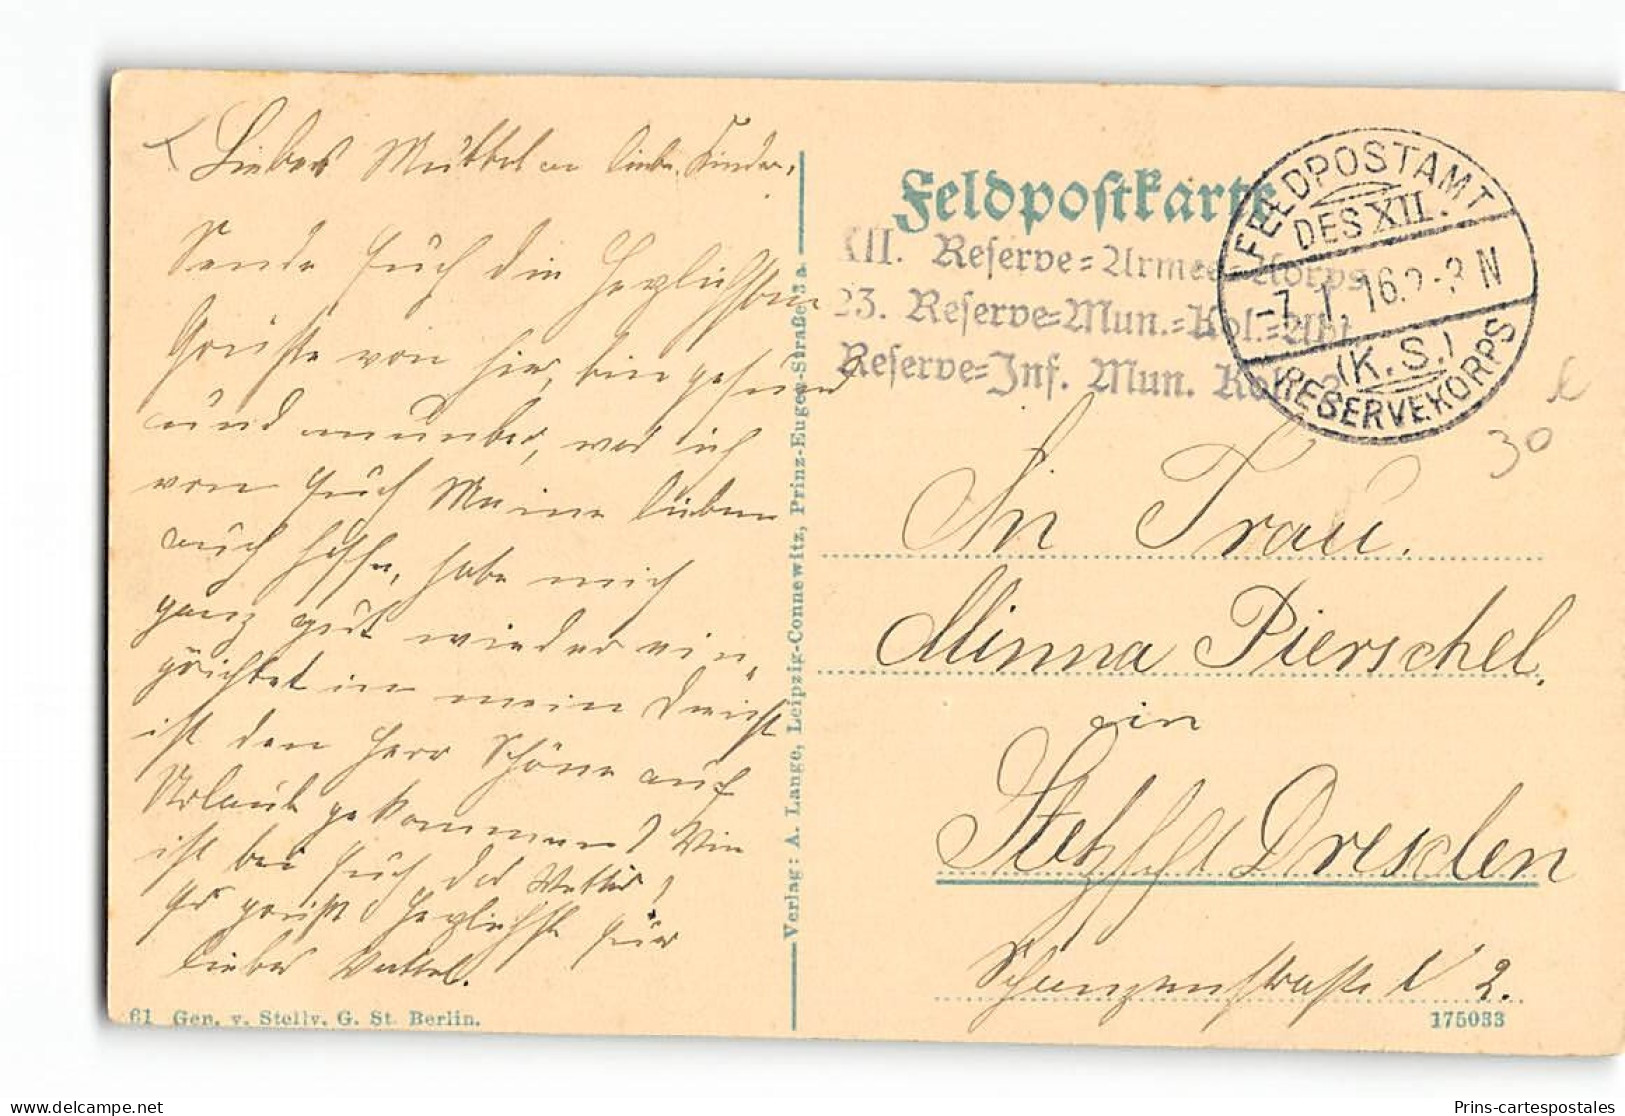 Liebes Muttel u liebe Kinder.
Sende Euch die herzlichsten
Grüße von hier, bin gesund
und munter, was ich
von Euch Meine lieben
auch hoffe, habe mich
ganz gut wieder ein,
gerichtet in mein Dienst
ist den Herr Schöne auf
Urlaub gekommen? Wie
ist bei Euch das Wetter?
Es grüßt herzlichst Euer
lieber Vattel.
61 Gen. v. Stellv. G. St. Berlin.
Verlag: A. Lange, Leipzig-Connewitz, Prinz-Eugen-Straße 3a.
Feldpostkarte
XII. Reserve=Armee=Korps
23. Reserve=Mun.=Kol.=Abt.
Reserve=Inf. Mun. Kol.
FELDPOSTAMT
DES XII.
-7.1.16.2-3 N
(K.S.)
RESERVEKORPS
30
An Frau.
Minna Pierschel.
in
Dresden
Schanzenstraße N 2.
175033
Prins-cartespostales
delcampe.net